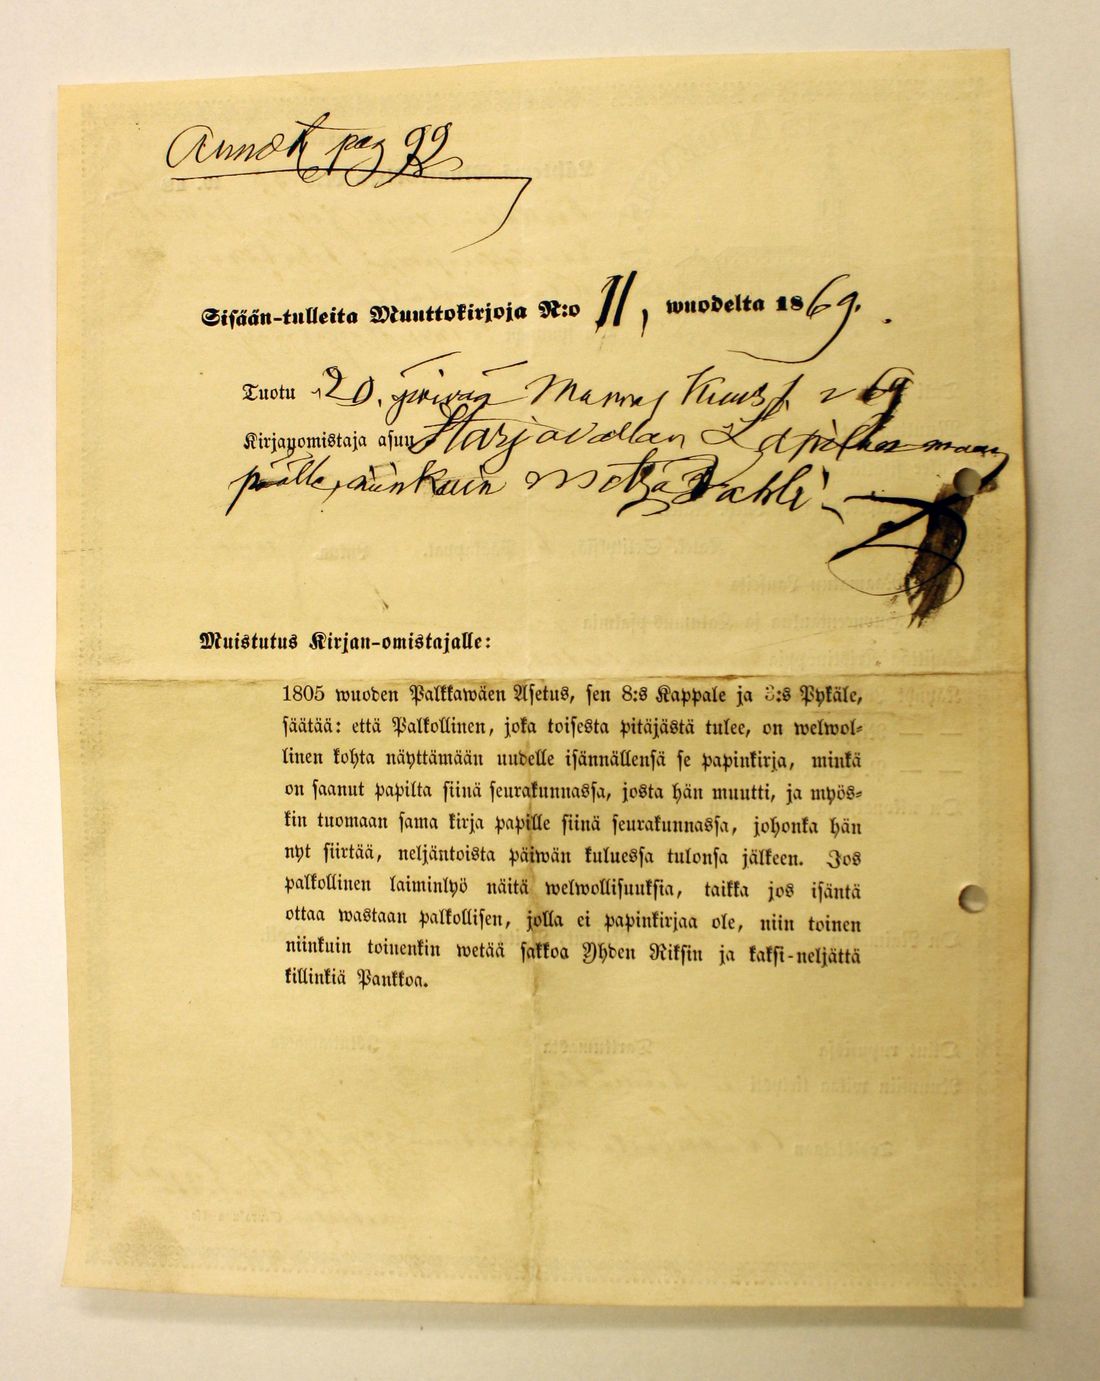 pag 92
Sisään-tulleita Muuttokirjoja N:o 11, wuodelta 1869.
Tuotu 20. päivä Marras Kuus 69
Kirjanomistaja asuu Harjavallan
päälle, niinkuin
Muistutus Kirjan-omistajalle:
1805 wuoden Palkkawäen Asetus, sen 8:s Kappale ja 3:s Pykäle,
säätää: että Palkollinen, joka toisesta pitäjästä tulee, on welwol-
linen kohta näyttämään uudelle isännällensä se papinkirja, minkä
on saanut papilta siinä seurakunnassa, josta hän muutti, ja myös-
kin tuomaan sama kirja papille siinä seurakunnassa, johonka hän
nyt siirtää, neljäntoista päiwän kuluessa tulonsa jälkeen. Jos
palkollinen laiminlyö näitä welwollisuuksia, taikka jos isäntä
ottaa wastaan palkollisen, jolla ei papinkirjaa ole, niin toinen
niinkuin toinenkin wetää sakkoa Yhden Riksin ja kaksi-neljättä
killinkiä Pankkoa.